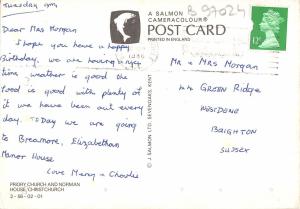 Tuesday 9pm
Dear Mrs Morgan
I hope you have a happy
Birthday. we are having a nice
time, weather is good the
food is good with plenty of
it we have been out every
day. Today we are going
to Breamore, Elizabethan
Manor House
Love Mary & Charles
PRIORY CHURCH AND NORMAN
HOUSE, CHRISTCHURCH
2-56-02-01
© J SALMON LTD., SEVENOAKS, KENT
A SALMON
CAMERACOLOUR®
POST CARD
PRINTED IN ENGLAND
B 97024
12P
Mr & Mrs Morgan
44 GREEN RIDGE
WESTDENE
BRIGHTON
SUSSEX